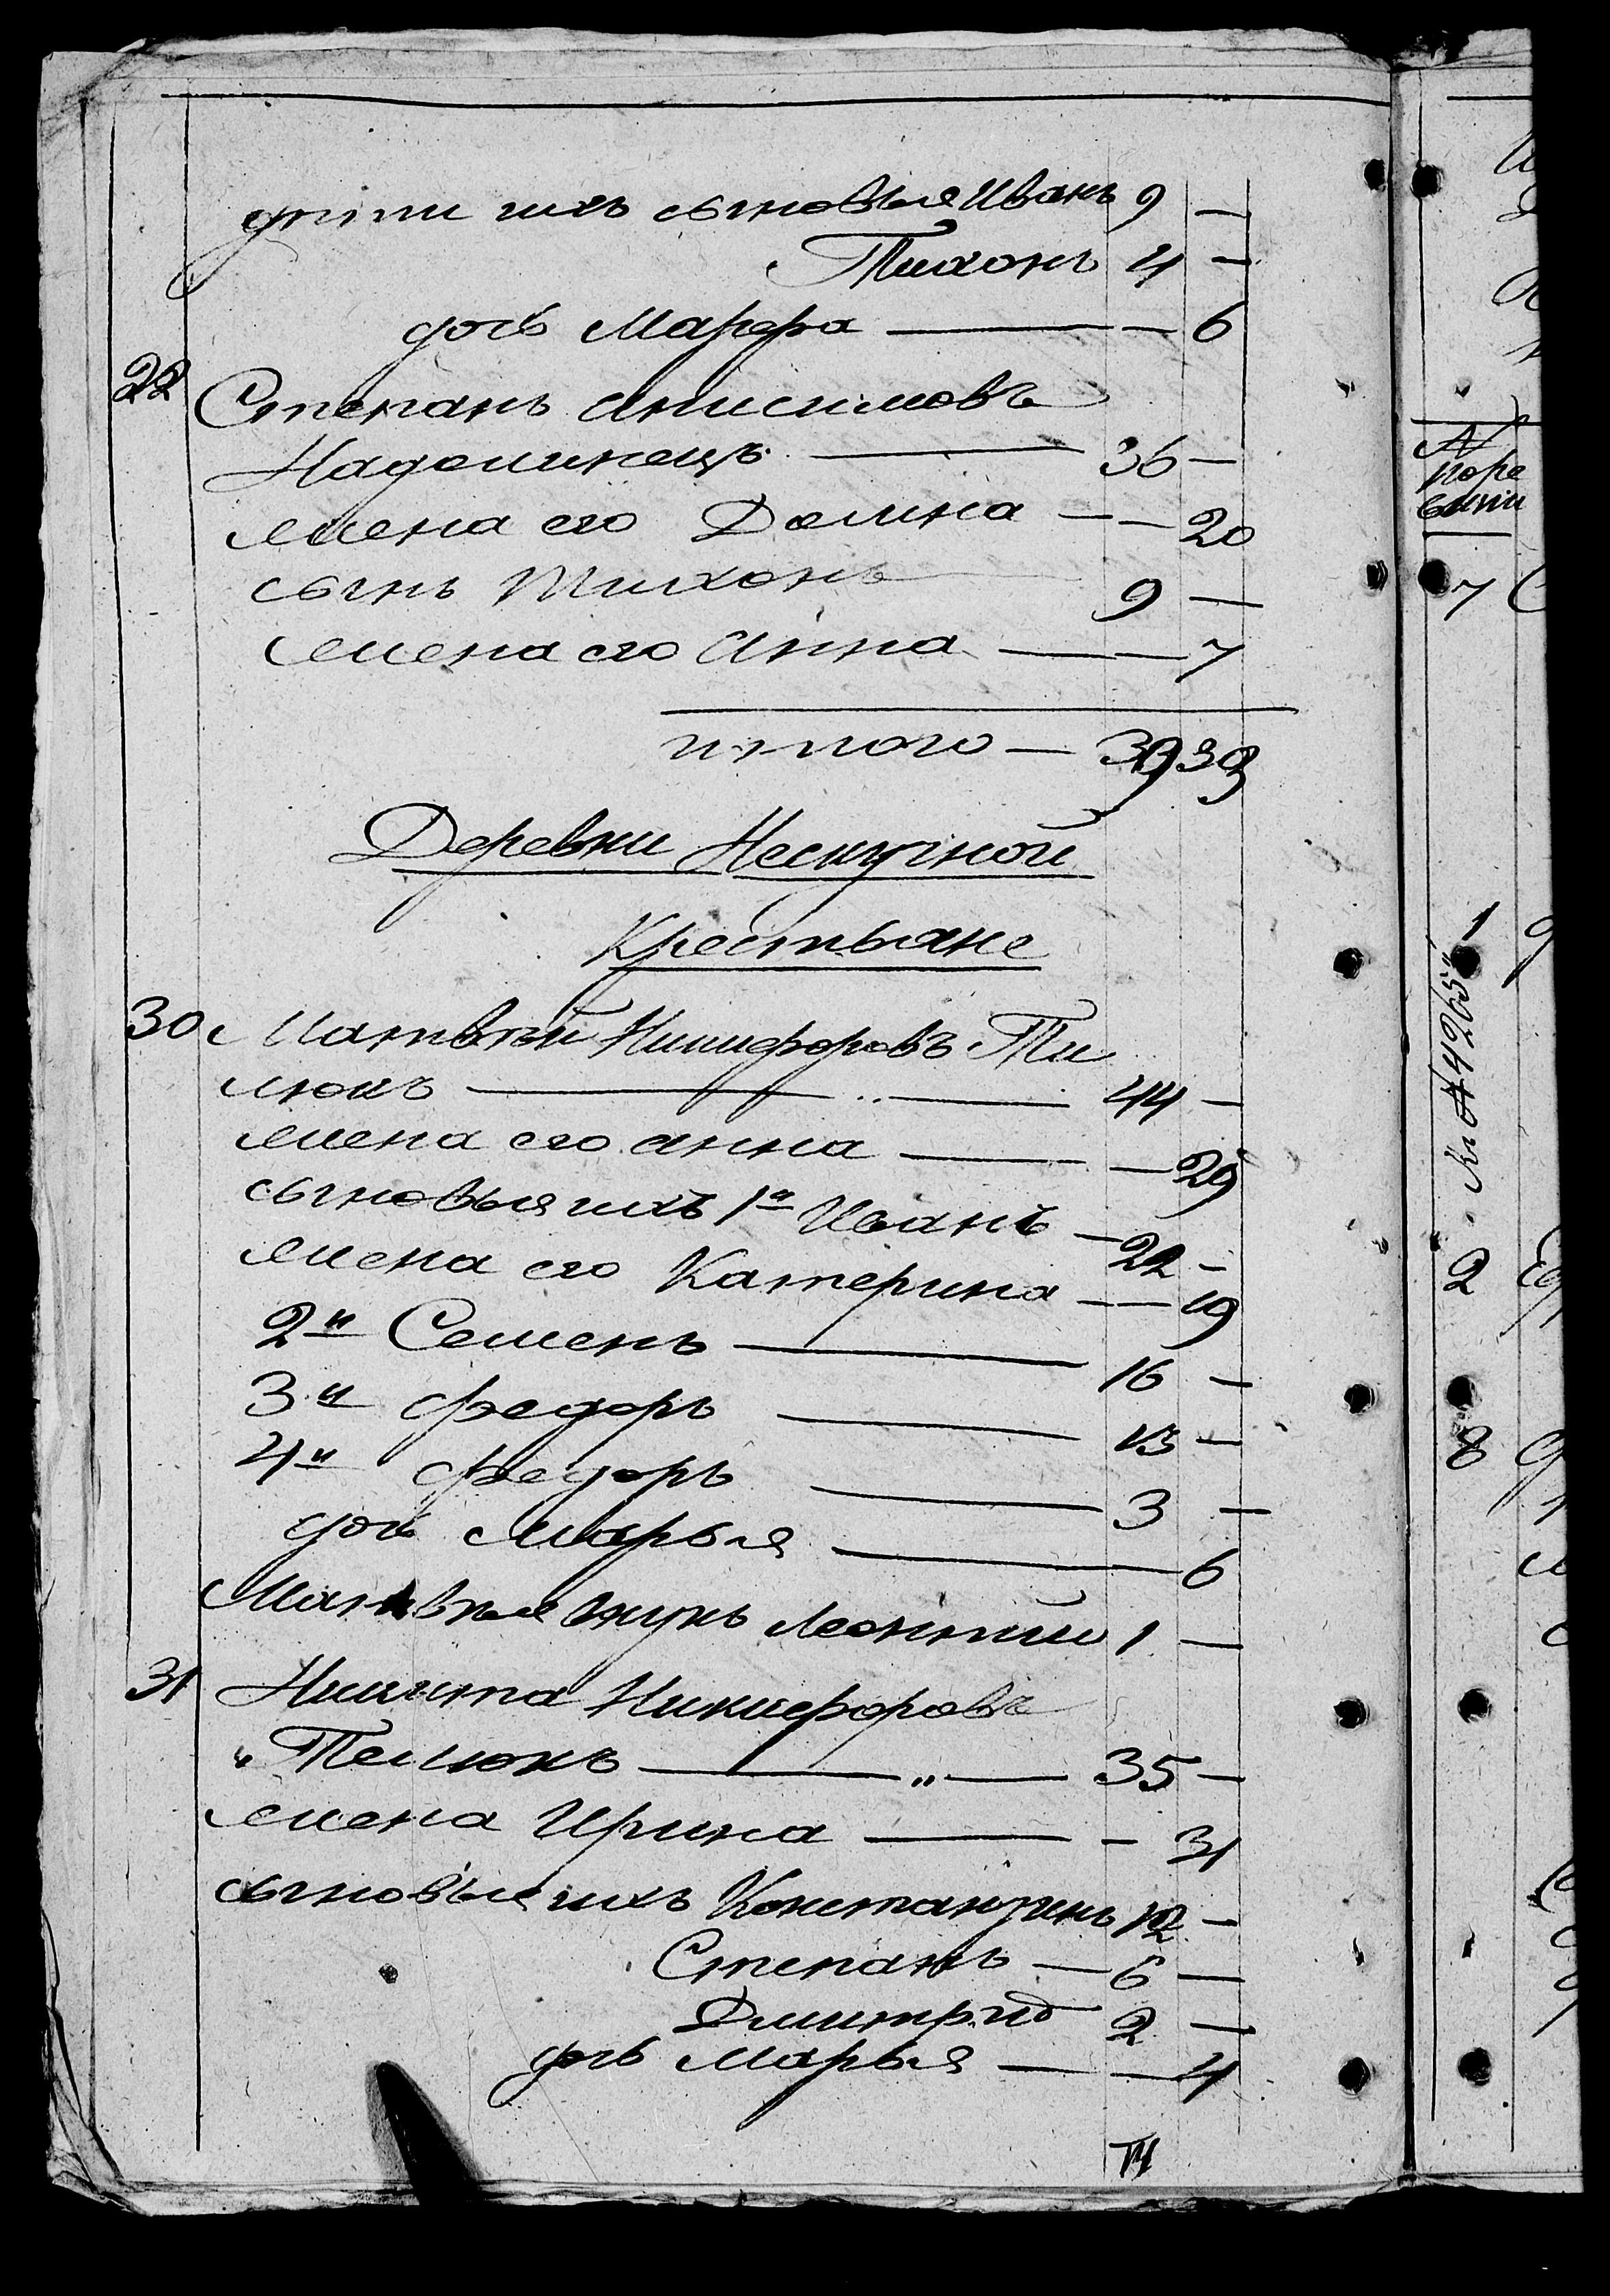 дѣти ихъ сыновья Иванъ 9 —
Тихонъ 4 —
дочь Марфа — — 6
22 Степанъ Анисимовъ
Надолинецъ — 36 —
жена его Домна — — 20
сынъ Тихонъ 9 —
жена его Анна — — 7
итого — 39 39
Деревни Нескучной
Крестьяне
30 Матвѣй Никифоровъ Ти
люкъ — 44 —
жена его Анна — — 29
сыновья ихъ 1й Иванъ — 22 —
жена его Катерина — — 19
2й Семенъ — 16 —
3й Федоръ — 13 —
4й Федоръ — 3 —
дочь Марья — — 6
Матвѣя внукъ Леонтий 1 —
31 Никита Никифоровъ
Телюкъ — „ — 35 —
жена Ирина — — 31
сыновья ихъ Константинъ 12 —
Степанъ — 6 —
Дмитрий 2 —
дочь Марья — — 4
N
поре
визии
7
1
2
8